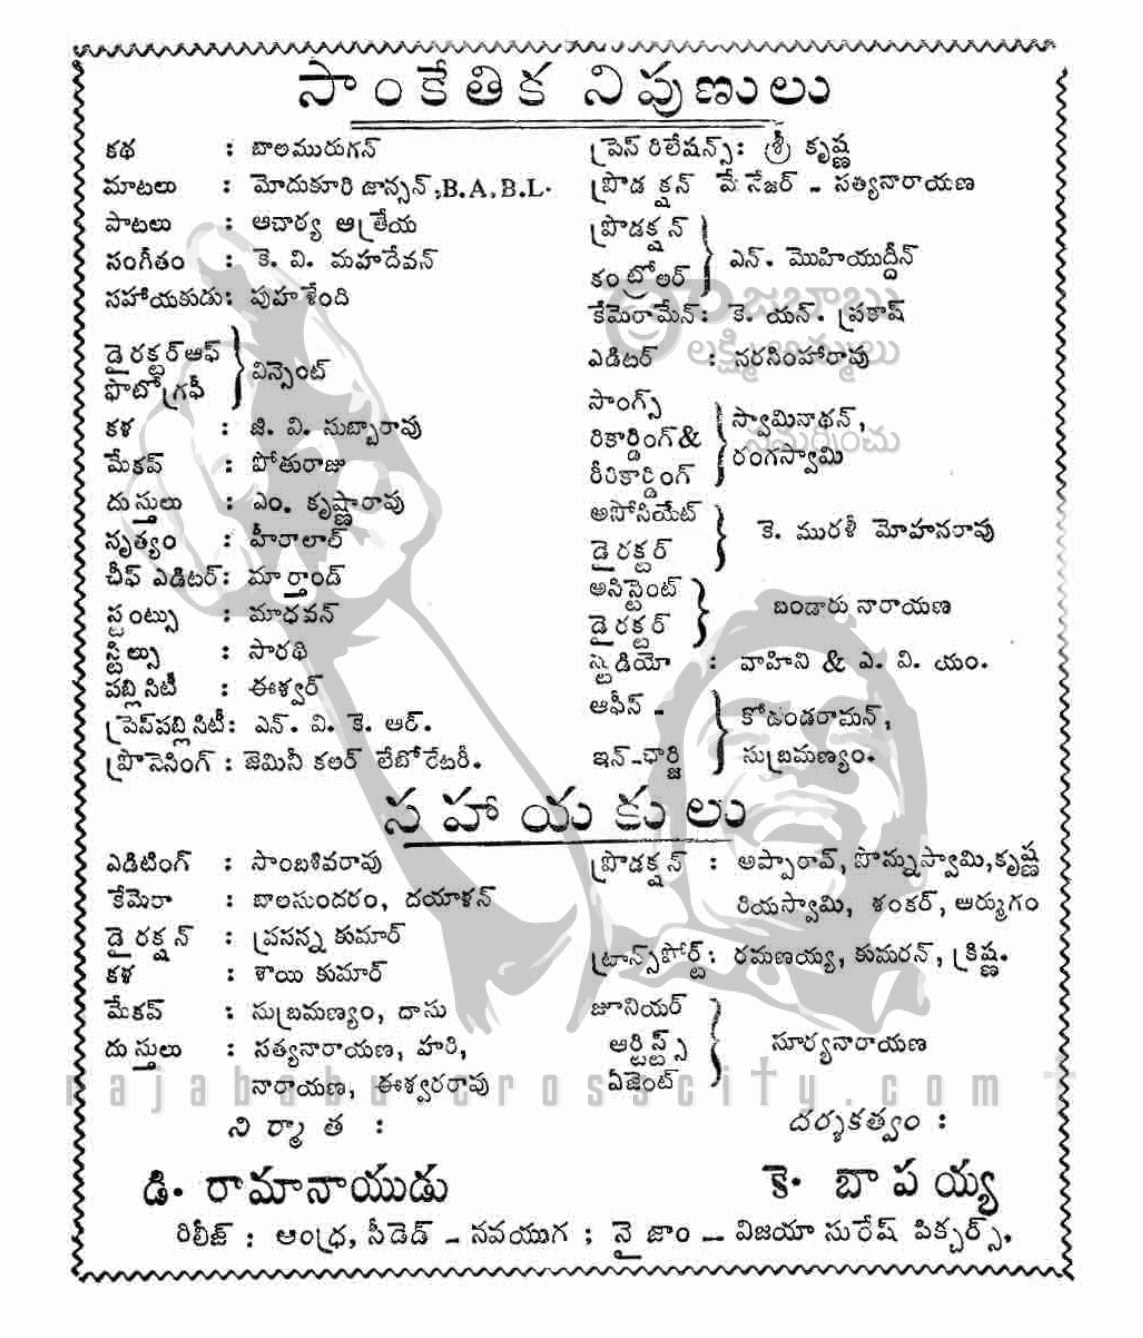 సాంకేతిక నిపుణులు
కథ : బాలమురుగన్
మాటలు : మోదుకూరి జాన్సన్,B.A,B.L.
పాటలు : ఆచార్య ఆత్రేయ
సంగీతం : కె. వి. మహదేవన్
సహాయకుడు: పుహళేంది
డైరక్టర్ఆఫ్
ఫొటోగ్రఫీ } విన్సెంట్
కళ : జి. వి. సుబ్బారావు
మేకప్ : పోతురాజు
దుస్తులు : ఎం. కృష్ణారావు
నృత్యం : హీరాలాల్
చీఫ్ ఎడిటర్: మార్తాండ్
స్టంట్సు : మాధవన్
స్టిల్సు : సారథి
పబ్లిసిటీ : ఈశ్వర్
ప్రెస్‌పబ్లిసిటీ: ఎన్. వి. కె. ఆర్.
ప్రొసెసింగ్ : జెమినీ కలర్ లేబోరేటరీ.
ప్రెస్ రిలేషన్స్: శ్రీ కృష్ణ
ప్రొడక్షన్ మేనేజర్ - సత్యనారాయణ
ప్రొడక్షన్
కంట్రోలర్ } ఎన్. మొహియుద్దీన్
కేమెరామేన్: కె. యన్. ప్రకాష్
ఎడిటర్ : నరసింహారావు
సాంగ్స్
రికార్డింగ్&
రీరికార్డింగ్ } స్వామినాథన్,
రంగస్వామి
అసోసియేట్
డైరక్టర్ } కె. మురళీ మోహనరావు
అసిస్టెంట్
డైరక్టర్ } బండారు నారాయణ
స్టుడియో : వాహిని & ఎ. వి. యం.
ఆఫీస్ -
ఇన్-ఛార్జి } కోదండరామన్,
సుబ్రమణ్యం.
రాజబాబు
లక్ష్మి అమ్ములు
సమర్పించు
సహాయకులు
ఎడిటింగ్ : సాంబశివరావు
కేమెరా : బాలసుందరం, దయాళన్
డైరక్షన్ : ప్రసన్న కుమార్
కళ : శాయి కుమార్
మేకప్ : సుబ్రమణ్యం, దాసు
దుస్తులు : సత్యనారాయణ, హరి,
నారాయణ, ఈశ్వరరావు
ప్రొడక్షన్ : అప్పారావ్, పొన్నుస్వామి,కృష్ణ
రియస్వామి, శంకర్, ఆర్ముగం
ట్రాన్స్‌పోర్ట్: రమణయ్య, కుమరన్, క్రిష్ణ.
జూనియర్
ఆర్టిస్ట్స్
ఏజెంట్ } సూర్యనారాయణ
rajababu.crosscity.com
నిర్మాత :
డి. రామానాయుడు
దర్శకత్వం :
కె. బాపయ్య
రిలీజ్ : ఆంధ్ర, సీడెడ్ - నవయుగ ; నైజాం - విజయా సురేష్ పిక్చర్స్.